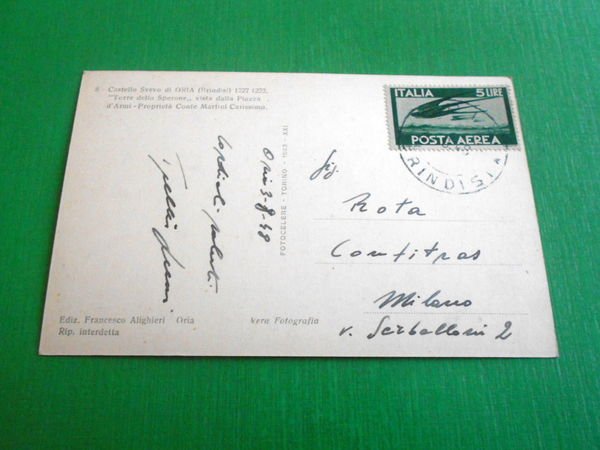 8 - Castello Svevo di ORIA (Brindisi) 1227-1233,
"Torre dello Sperone,, vista dalla Piazza
d'Armi - Proprietà Conte Martini Carissimo.
ITALIA 5 LIRE
POSTA AEREA
BRINDISI
Oria 3-8-48
Cordiali saluti
FOTOCELERE - TORINO - 1943 - XXI
Sig.
Rota
Confitras
Milano
v. Serbelloni 2
Ediz. Francesco Alighieri Oria
Rip. interdetta
Vera Fotografia